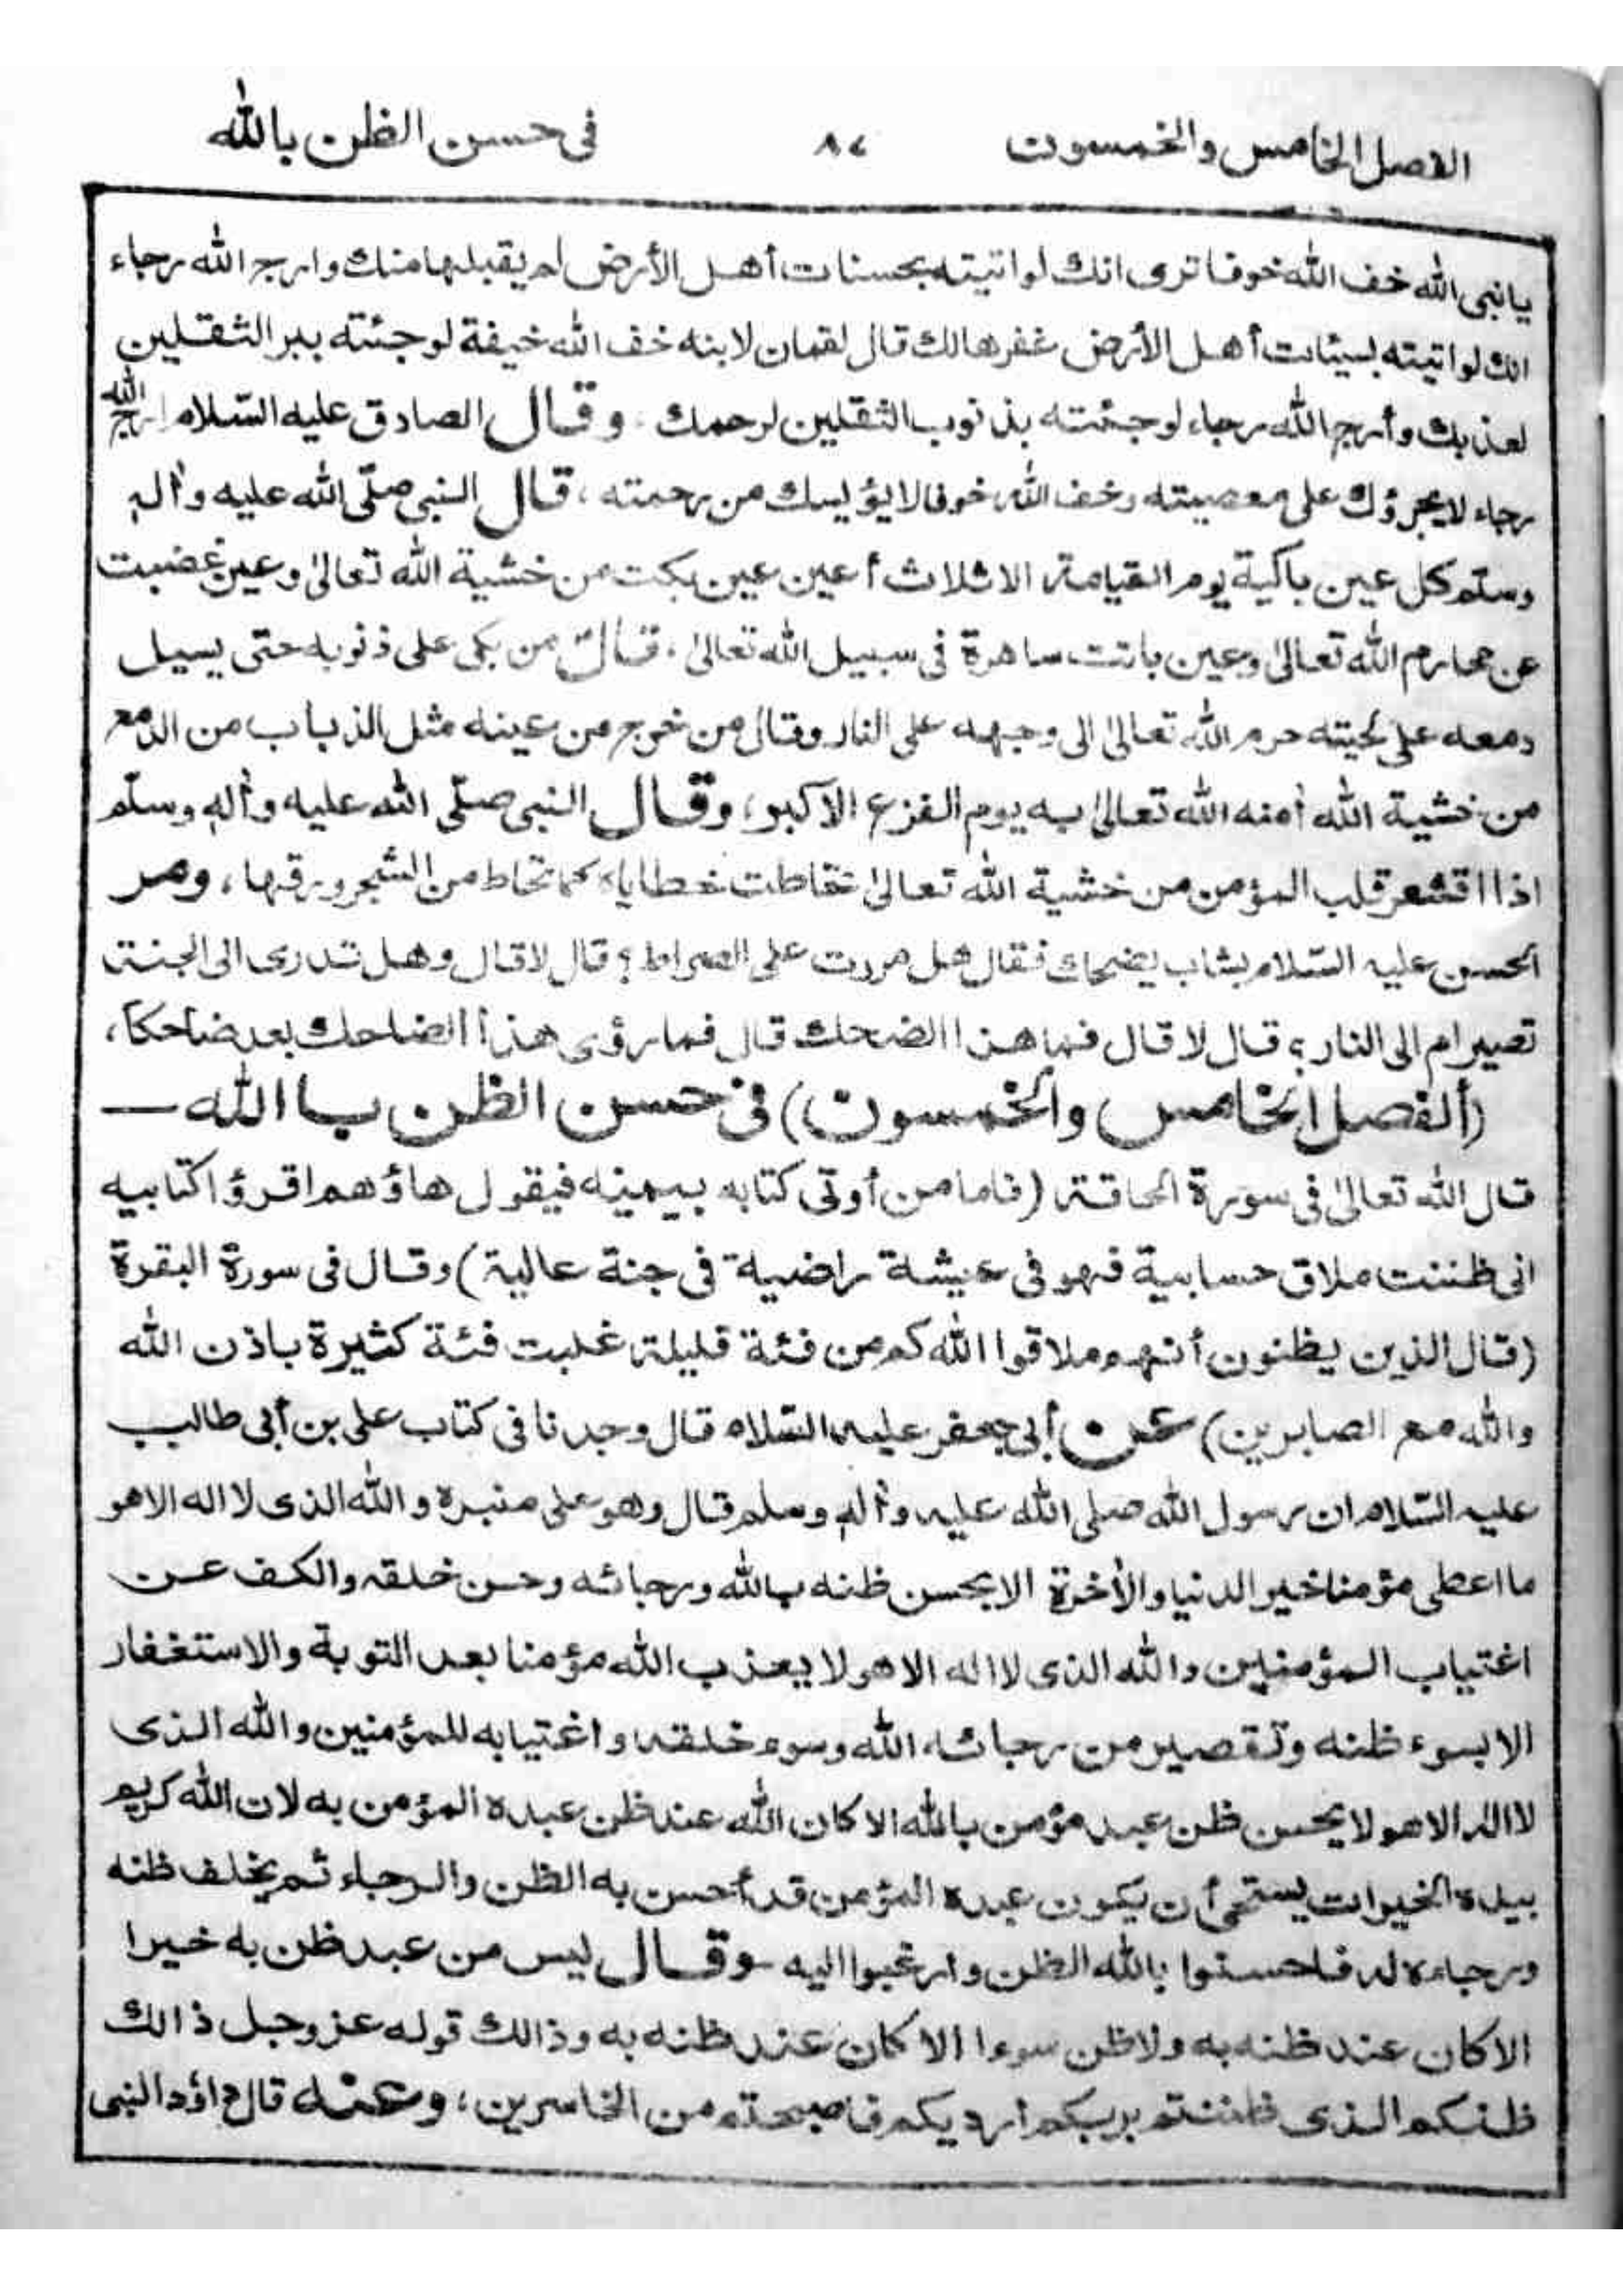 الفصل الخامس والخمسون ٨٤ فى حسن الظن بالله
يا نبى الله خف الله خوفا ترى انك لو اتيته بحسنات أهل الأرض لم يقبلها منك وارج الله رجاء
انك لو اتيته بسيئات أهل الأرض غفرها لك قال لقمان لابنه خف الله خيفة لو جئته ببر الثقلين
لعذبك وأرج الله رجاء لو جئته بذنوب الثقلين لرحمك . وقال الصادق عليه السّلام ارج الله
رجاء لا يجرؤك على معصيته وخف الله خوفا لا يؤيسك من رحمته ، قال النبى صلّى الله عليه واٰله
وسلّم كل عين باكية يوم القيامة الا ثلاث أعين عين بكت من خشية الله تعالىٰ وعين غضبت
عن محارم الله تعالىٰ وعين باتت ساهرة فى سبيل الله تعالىٰ ، قال من بكى على ذنوبه حتى يسيل
دمعه على لحيته حرم الله تعالىٰ الى وجهه على النار وقال من خرج من عينه مثل الذباب من الدمع
من خشية الله اٰمنه الله تعالىٰ به يوم الفزع الاكبر ، وقال النبى صلّى الله عليه واٰله وسلّم
اذا اقشعر قلب المؤمن من خشية الله تعالىٰ تحاطت خطاياه كما تحاط من الشجر ورقها ، ومر
الحسن عليه السّلام بشاب يضحك فقال هل مررت على الصراط ؟ قال لا قال وهل تدرى الى الجنة
تصير ام الى النار ؟ قال لا قال فما هذا الضحك قال فما رؤى هذا الضاحك بعد ضاحكا ،
(ألفصل الخامس والخمسون) فى حسن الظن با الله —
قال الله تعالىٰ فى سورة الحاقة (فاما من أوتى كتابه بيمينه فيقول هاؤهم اقرؤا كتابيه
انى ظننت ملاق حسابية فهو فى عيشة راضية فى جنة عالية) وقال فى سورة البقرة
(قال الذين يظنون أنهم ملاقوا الله كم من فئة قليلة غلبت فئة كثيرة باذن الله
والله مع الصابرين) عن أبى جعفر عليه السّلام قال وجدنا فى كتاب على بن أبى طالب
عليه السّلام ان رسول الله صلى الله عليه واٰله وسلم قال وهو على منبره والله الذى لا اله الا هو
ما اعطى مؤمنا خير الدنيا والأخرة الا بحسن ظنه بالله ورجائه وحسن خلقه والكف عن
اغتياب المؤمنين والله الذى لا اله الا هو لا يعذب الله مؤمنا بعد التوبة والاستغفار
الا بسوء ظنه وتقصير من رجائه الله وسوء خلقه واغتيابه للمؤمنين والله الذى
لا اله الا هو لا يحسن ظن عبد مؤمن بالله الا كان الله عند ظن عبده المؤمن به لان الله كريم
بيده الخيرات يستحى أن يكون عبده المؤمن قد أحسن به الظن والرجاء ثم يخلف ظنه
ورجاءه له فاحسنوا بالله الظن وارغبوا اليه . وقال ليس من عبد ظن به خيرا
الا كان عند ظنه به ولا ظن سوءا الا كان عند ظنه به وذالك قوله عز وجل ذالك
ظنكم الذى ظننتم بربكم ارديكم فاصبحتم من الخاسرين ، وعنه قال داؤد النبى